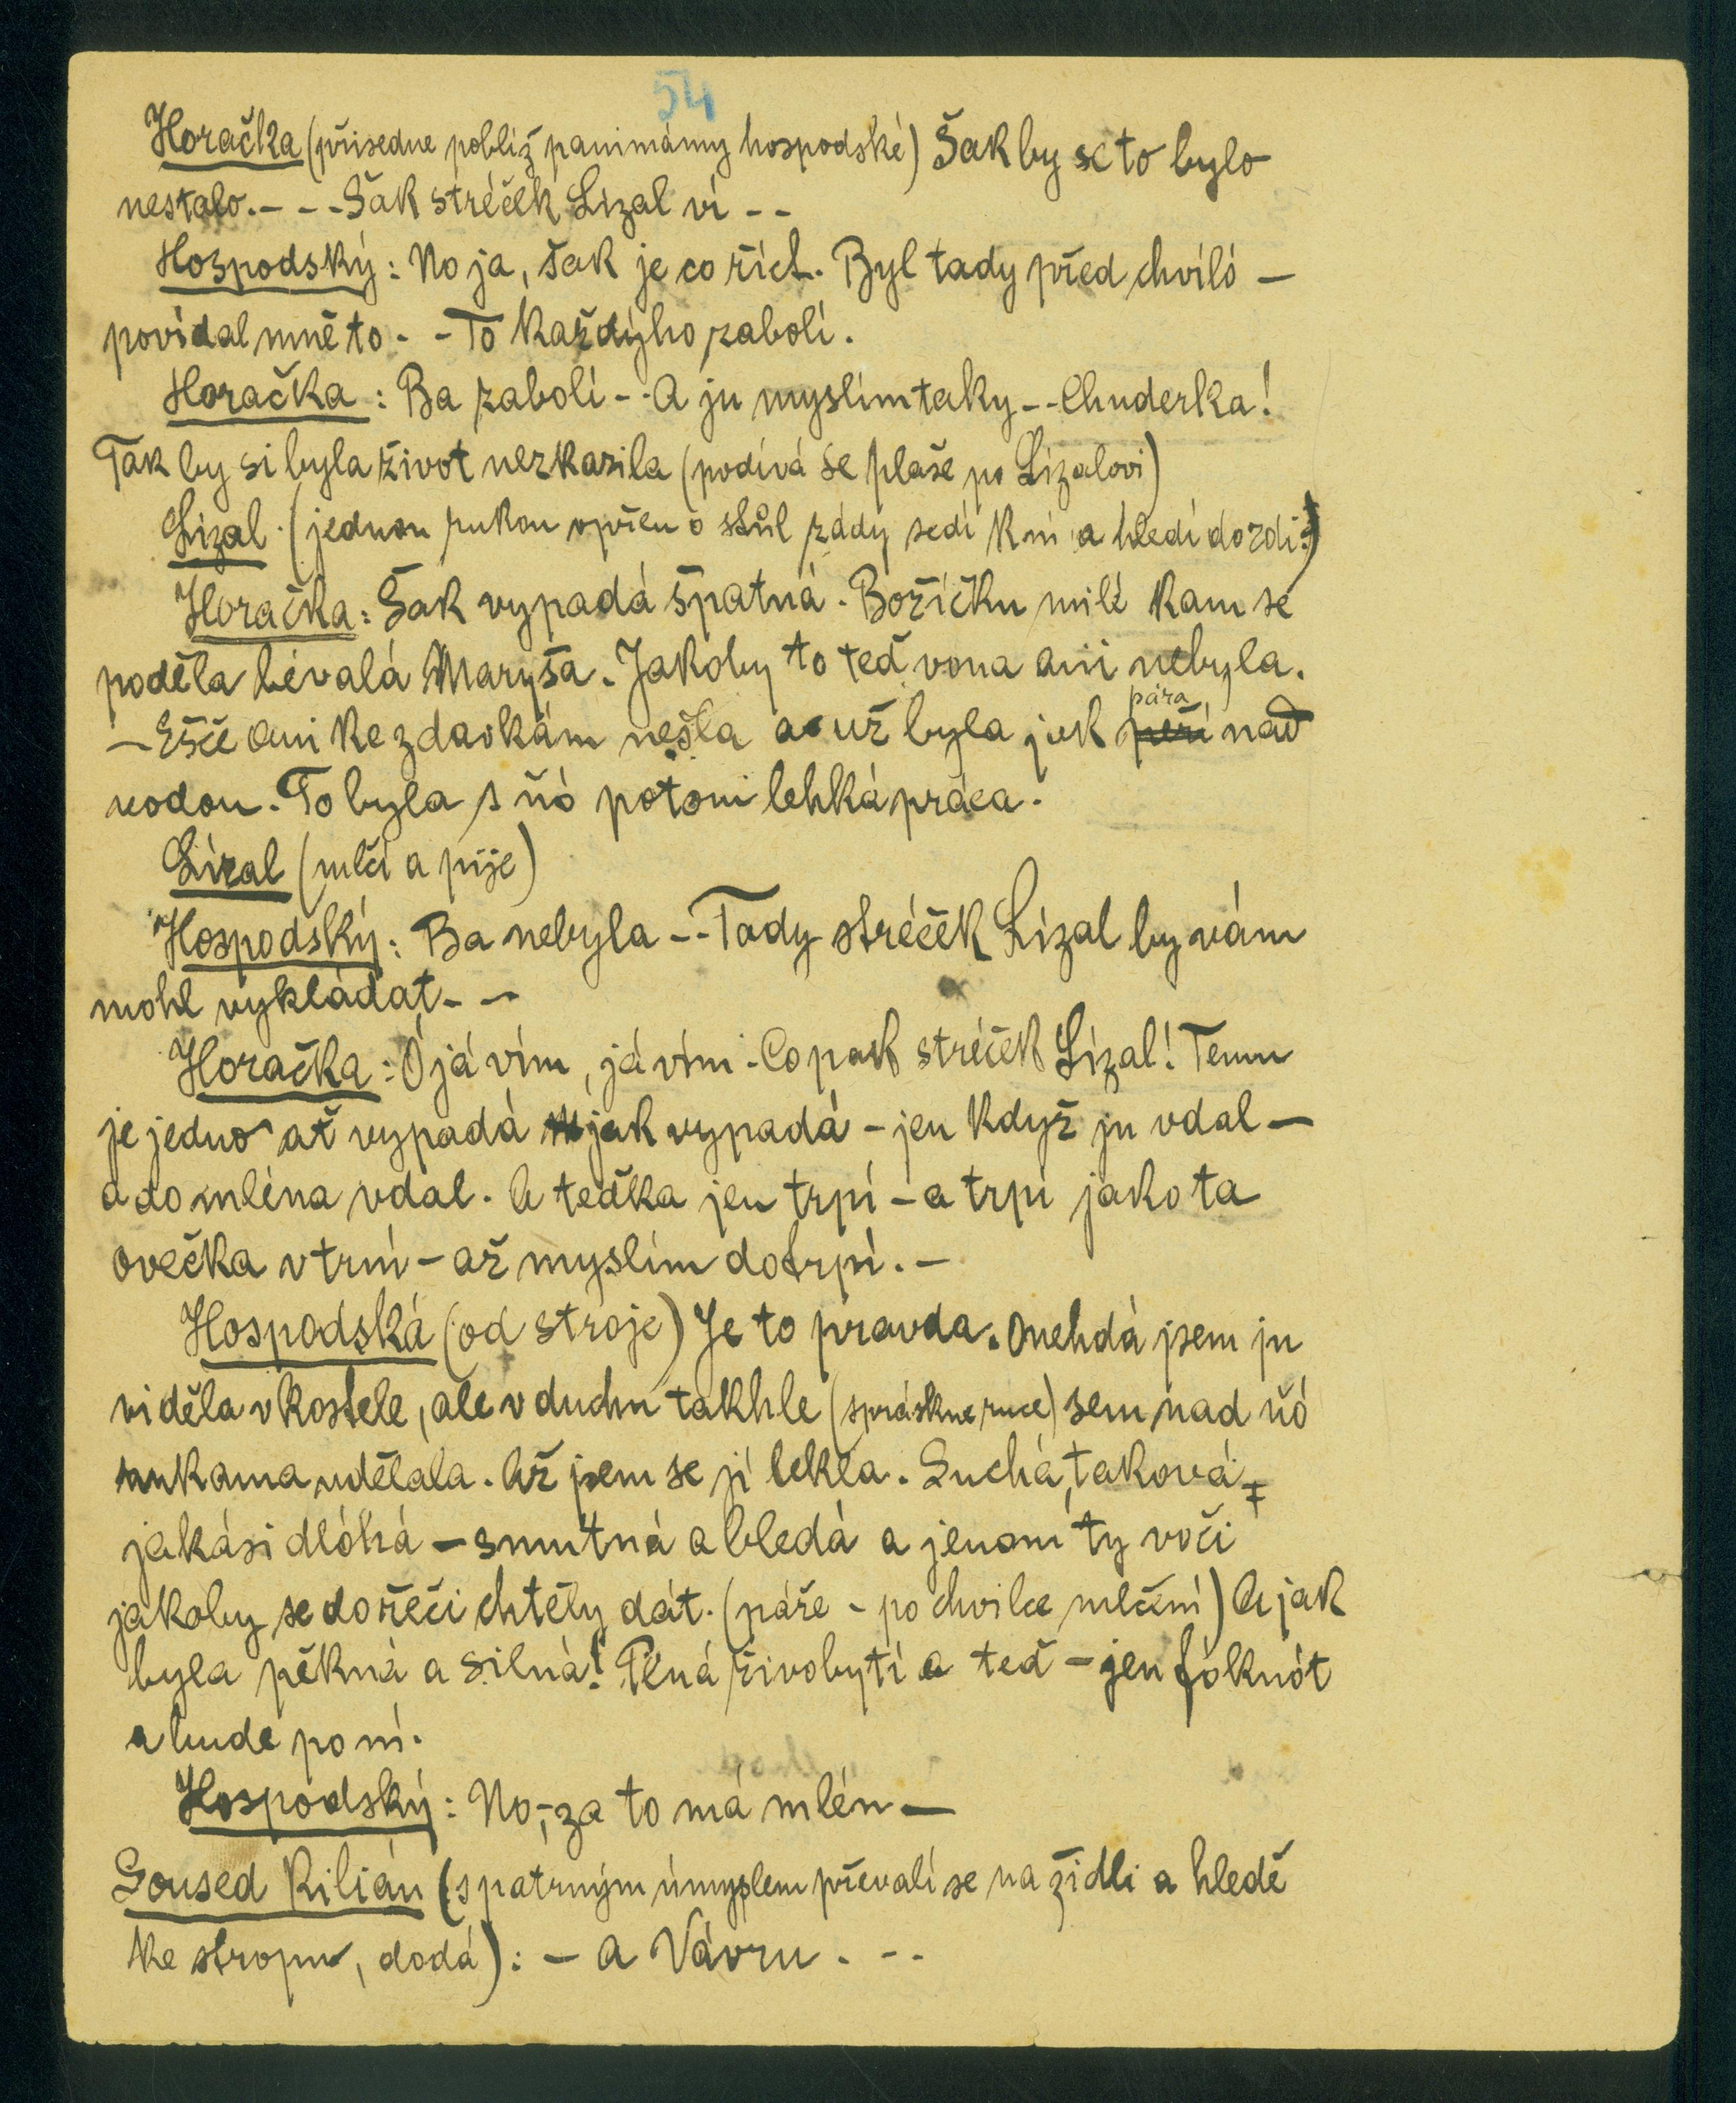 54
Horačka (přisedne poblíž panimámy hospodské) Šak by se to bylo
nestalo. - - - Šak stréček Lízal ví - -
Hospodský: No ja, šak je co říct. Byl tady před chviló —
povídal mně to - - To každýho zabolí.
Horačka: Ba zabolí - - A ju myslím taky - - Chuderka!
Tak by si byla život nezkazila (podívá se plaše po Lízalovi)
Lízal (jednou rukou opřen o stůl zády sedí k ní a hledí do zdi.)
Horačka: Šak vypadá špatná. Božíčku milé kam se
poděla bévalá Maryša. Jakoby to teď vona ani nebyla.
— Ešče ani ke zdavkám nešla a už byla jak peří pára nad
vodou. To byla s ňó potom lehká práca.
Lízal (mlčí a pije)
Hospodský: Ba nebyla - - Tady stréček Lízal by vám
mohl vykládat - -
Horačka: Ó já vím, já vím. Copak stréček Lízal! Temu
je jedno ať vypadá jak vypadá - jen když ju vdal —
a do mléna vdal. A teďka jen trpí - a trpí jako ta
ovečka v trní - až myslím dotrpí. —
Hospodská (od stroje) Je to pravda. Onehdá jsem ju
viděla v kostele, ale v duchu takhle (spráskne ruce) sem nad ňó
rukama udělala. Až jsem se jí lekla. Suchá, taková
jakási dlóhá — smutná a bledá a jenom ty voči
jakoby se do řeči chtěly dát. (páře - po chvilce mlčení) A jak
byla pěkná a silná! Plná živobytí a teď - jen fóknót
a bude po ní.
Hospodský: No, - za to má mlén —
Soused Kilián (s patrným úmyslem převalí se na židli a hledě
ke stropu, dodá): — a Vávru. - -